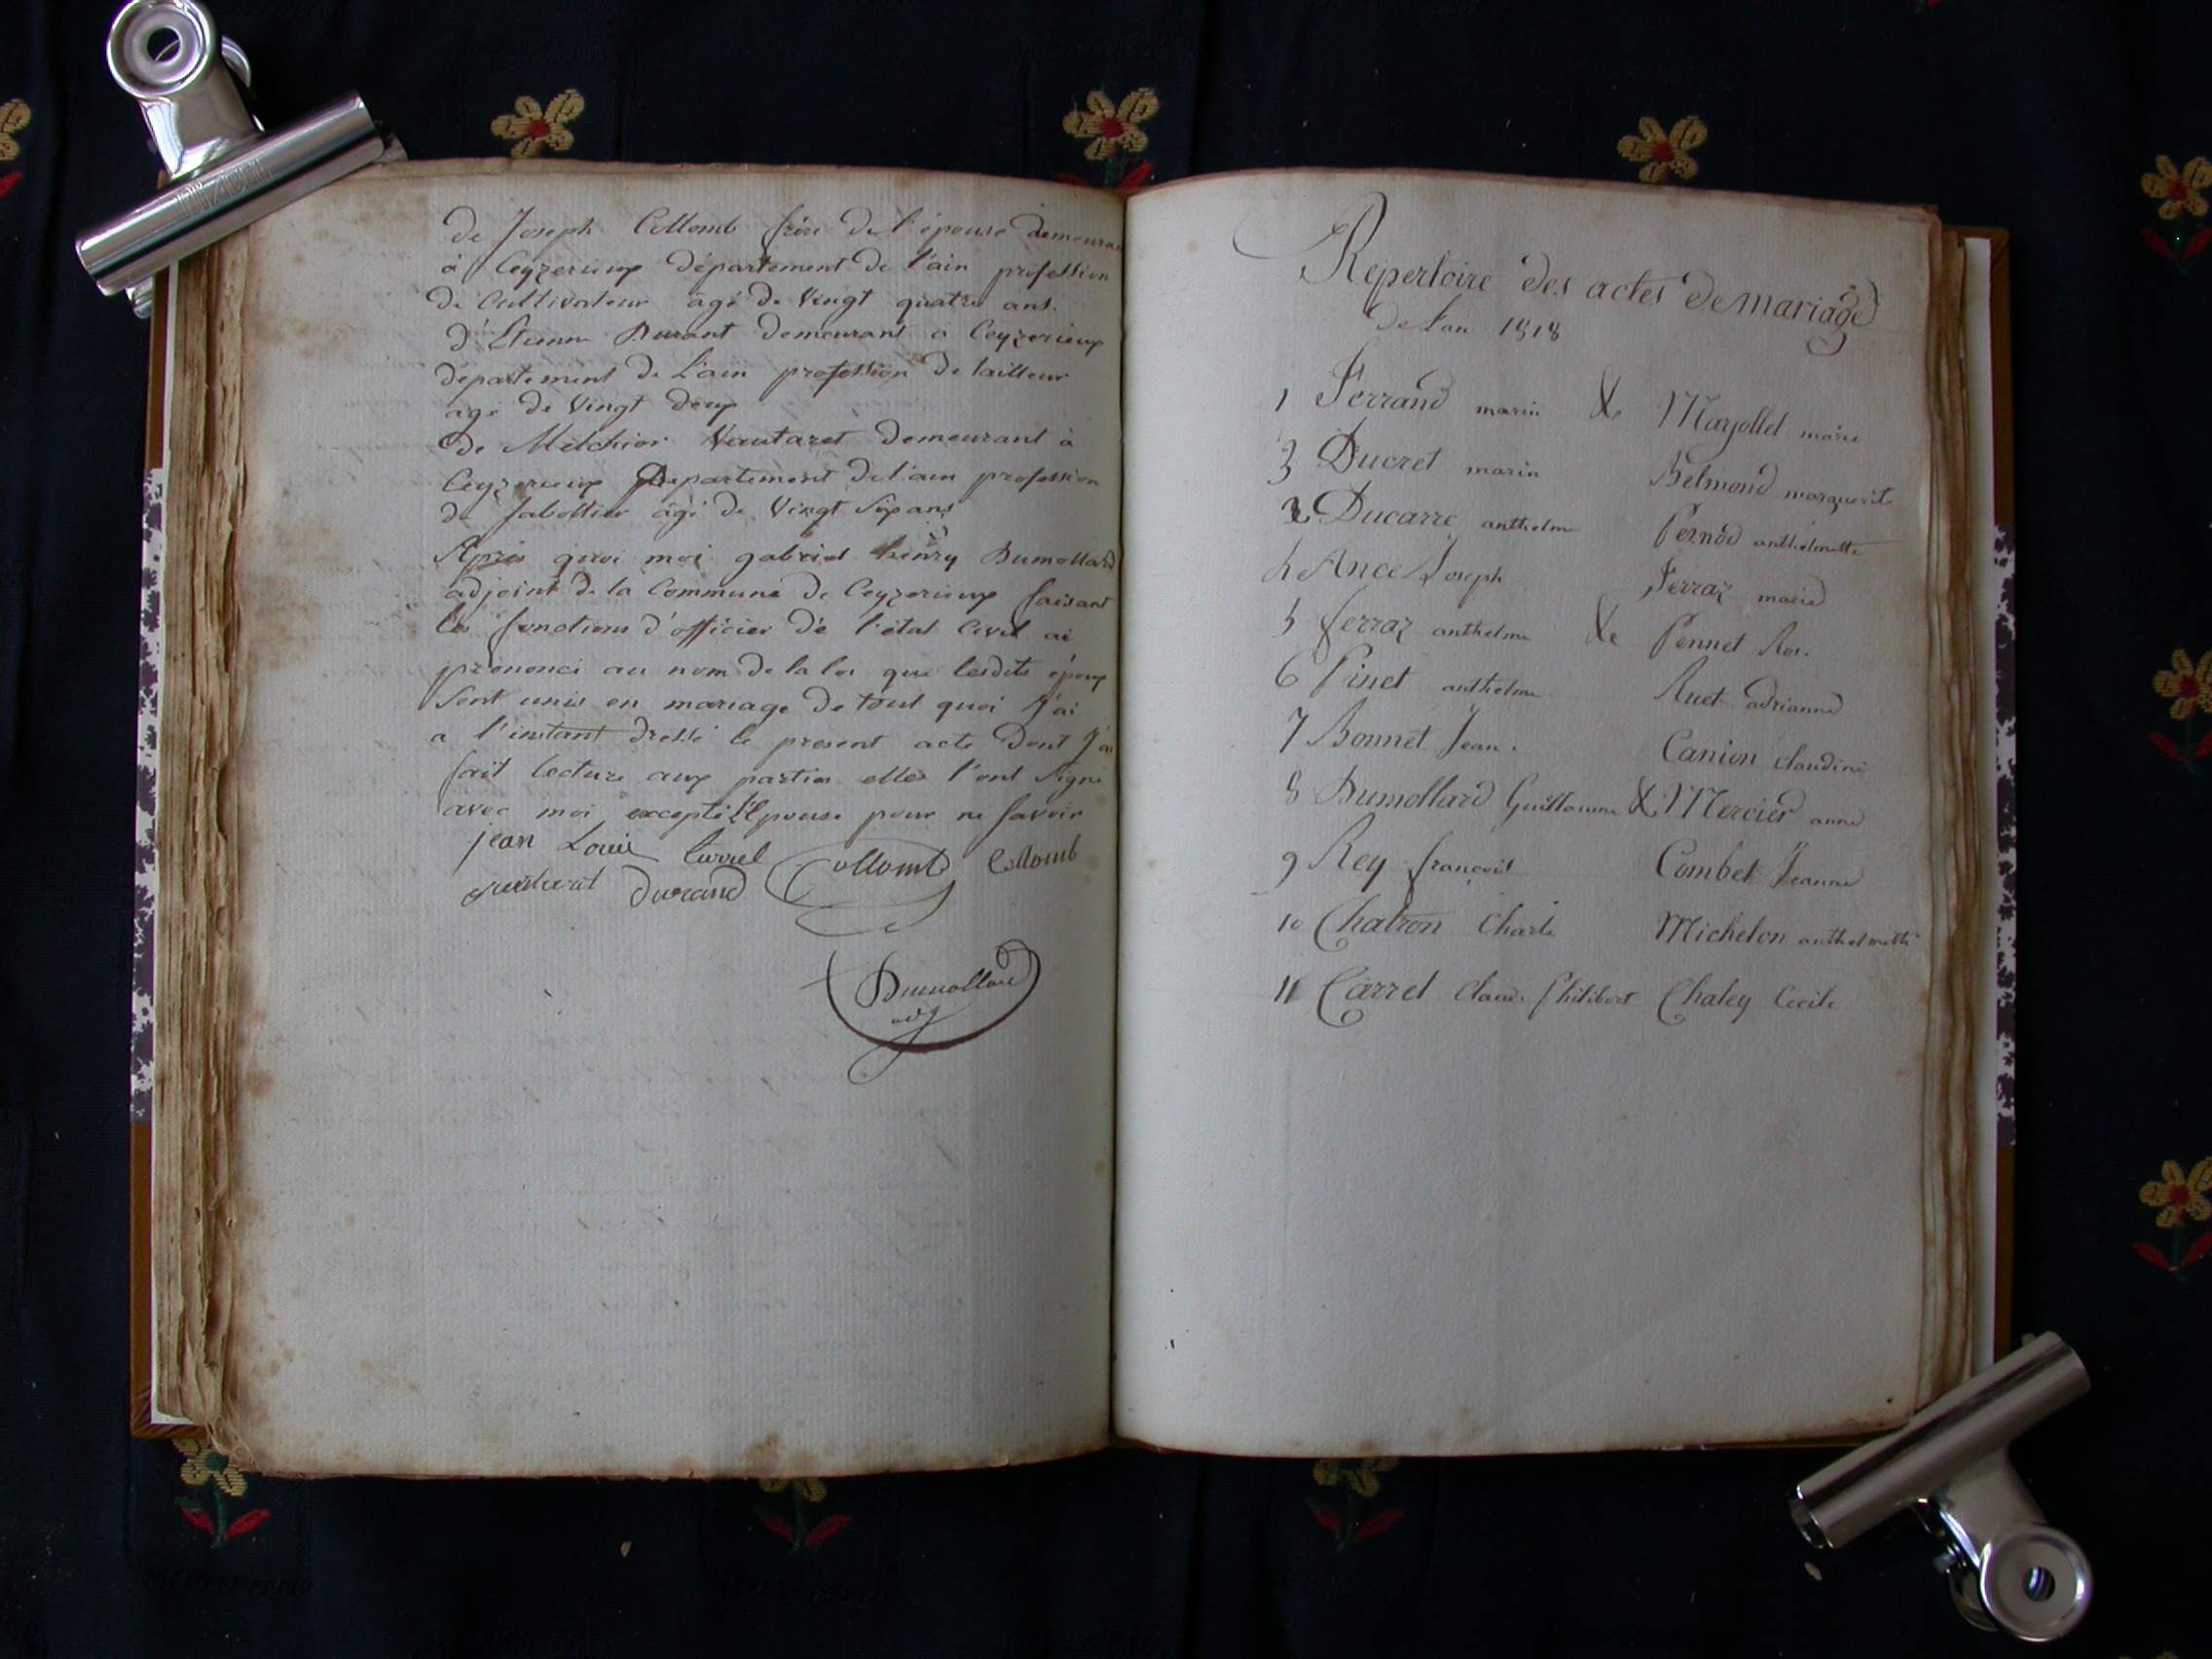 de Joseph Collomb frère de l'épouse demeuran
à Ceyzerieux département de l'ain profession
de Cultivateur agé de Vingt quatre ans.
d'Etienne Durant demeurant à Ceyzerieux
département de L'ain profession de tailleur
agé de Vingt deux
de Melchior Vautaret demeurant à
Ceyzerieux Departement de l'ain profession
de Sabottier âgé de Vingt Six ans
Après quoi moi gabriel henry Dumollard
adjoint de la Commune de Ceyzerieux faisant
les fonctions d'officier de l'état Civil ai
prononcé au nom de la loi que lesdits époux
Sont unis en mariage de tout quoi J'ai
a l'instant dressé le present acte dont J'ai
fait lecture aux parties elles l'ont Signé
avec moi excepté l'Epouse pour ne Savoir
jean Louis Curvel Collomb Collomb
durand
Dumollard
adj
Repertoire des actes de mariage
de L'an 1818
1 Ferrand marin & Mayollet marie
3 Ducret marin Belmond marguerit
2 Ducarre anthelme Pernod anthelmette
4 Ance Joseph Ferraz marie
5 ferraz anthelme & Pennet Rose
6 Pinet anthelme Ruet adrianne
7 Bonnet Jean. Canion claudine
8 Dumollard Guillaume & Mercier anne
9 Rey françois Combet Jeanne
10 Chatron Charle Michelon anthelmette
11 Carrel Claude Philibert Chaley Cecile